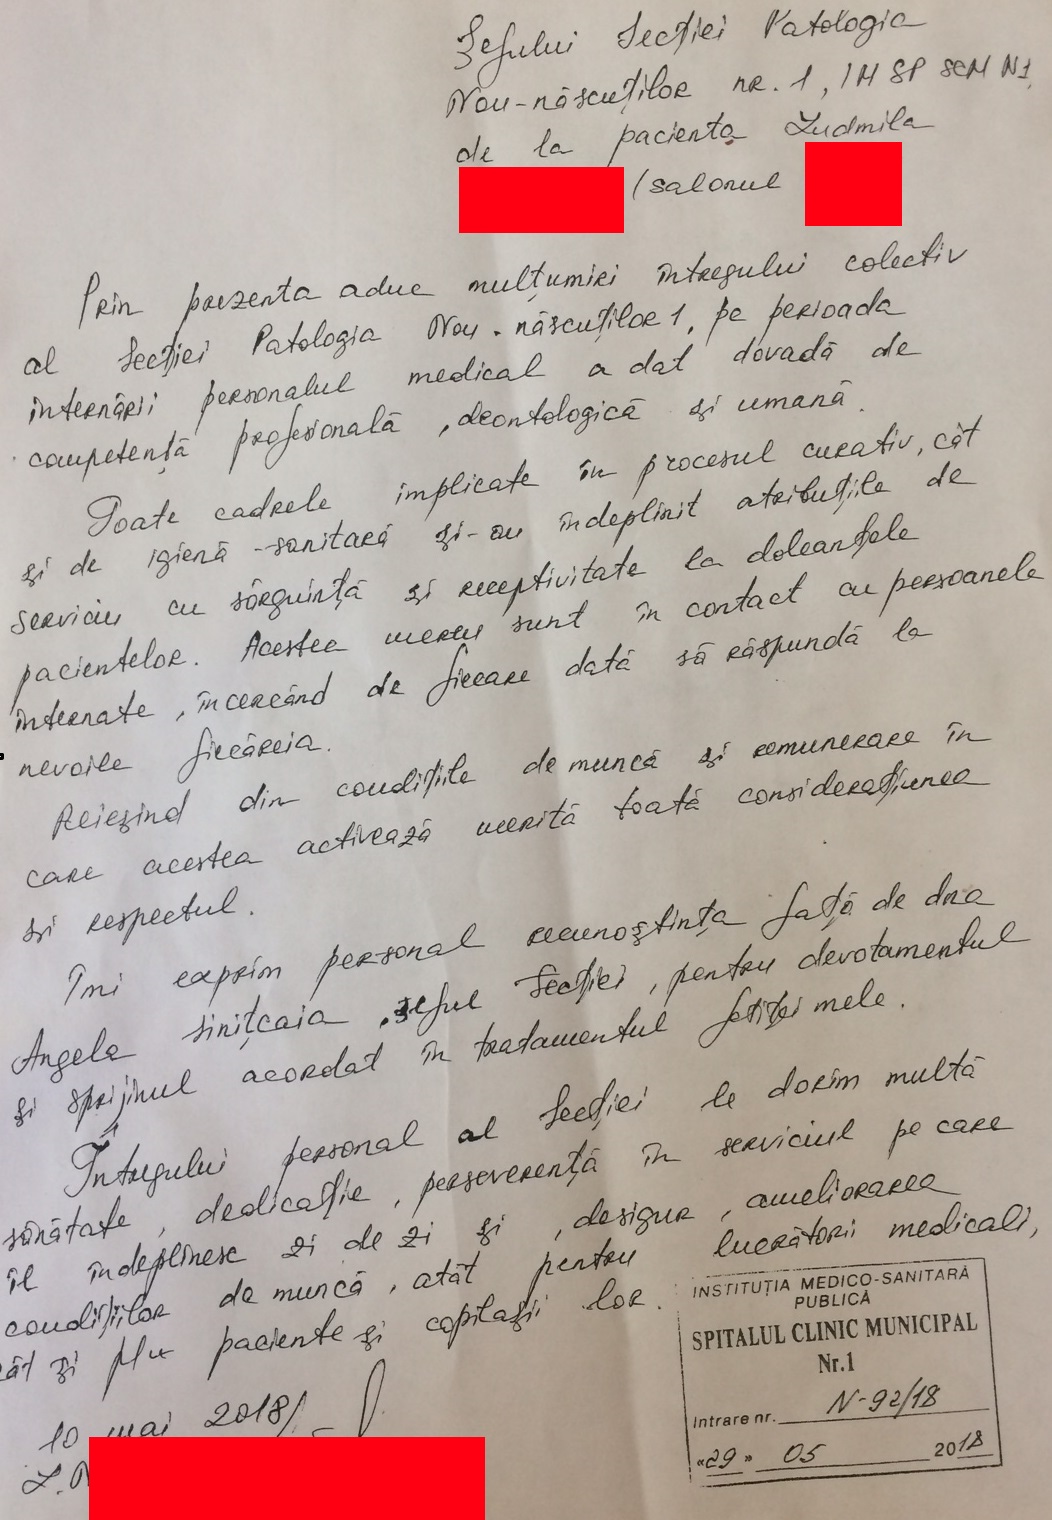 Șefului Secției Patologia
Nou-născuților nr. 1, IMSP SCM N1,
de la pacienta Ludmila
(salonul
Prin prezenta aduc mulțumiri întregului colectiv
al Secției Patologia Nou-născuților 1, pe perioada
internării personalul medical a dat dovadă de
competență profesională, deontologică și umană.
Toate cadrele implicate în procesul curativ, cât
și de igienă-sanitară și-au îndeplinit atribuțiile de
serviciu cu sârguință și receptivitate la doleanțele
pacientelor. Acestea mereu sunt în contact cu persoanele
internate, încercând de fiecare dată să răspundă la
nevoile fiecăreia.
Reieșind din condițiile de muncă și remunerare în
care acestea activează merită toată considerațiunea
și respectul.
Îmi exprim personal recunoștința față de dna
Angela Sinițcaia, șeful Secției, pentru devotamentul
și sprijinul acordat în tratamentul fetiței mele.
Întregului personal al Secției le dorim multă
sănătate, dedicație, perseverență în serviciul pe care
îl îndeplinesc zi de zi și, desigur, ameliorarea
condițiilor de muncă, atât pentru lucrătorii medicali,
cât și ptru paciente și copilașii lor.
10 mai 2018/
L.
INSTITUȚIA MEDICO-SANITARĂ
PUBLICĂ
SPITALUL CLINIC MUNICIPAL
Nr.1
Intrare nr. N-92/18
«29» 05 2018